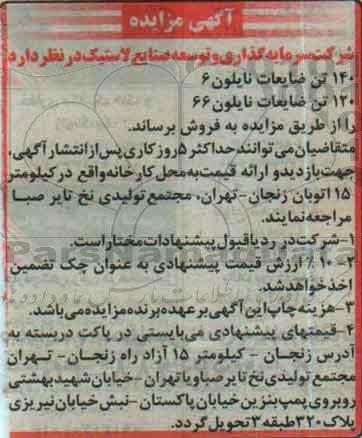 آگهی مزایده
شرکت سرمایه گذاری و توسعه صنایع لاستیک در نظر دارد
۱۴۰ تن ضایعات نایلون ۶
۱۲۰ تن ضایعات نایلون ۶۶
را از طریق مزایده به فروش برساند.
متقاضیان می توانند حداکثر ۵ روز کاری پس از انتشار آگهی،
جهت بازدید و ارائه قیمت به محل کارخانه واقع در کیلومتر
۱۵ اتوبان زنجان-تهران، مجتمع تولیدی نخ تایر صبا
مراجعه نمایند.
۱-شرکت در رد یا قبول پیشنهادات مختار است.
۲- ۱۰% ارزش قیمت پیشنهادی به عنوان چک تضمین
اخذ خواهد شد.
۳-هزینه چاپ این آگهی بر عهده برنده مزایده می باشد.
۴-قیمتهای پیشنهادی می بایستی در پاکت دربسته به
آدرس زنجان - کیلومتر ۱۵ آزاد راه زنجان- تهران
مجتمع تولیدی نخ تایر صبا و یا تهران-خیابان شهید بهشتی
روبروی پمپ بنزین خیابان پاکستان-نبش خیابان نی ریزی
پلاک ۳۲۰ طبقه ۳ تحویل گردد.